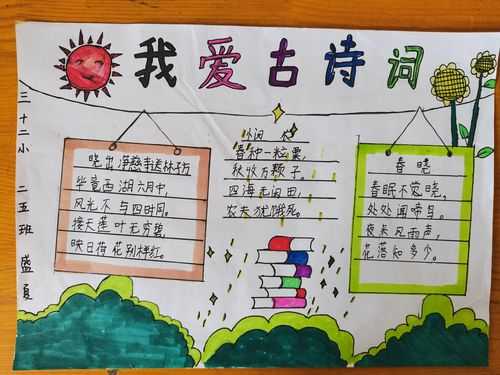 我爱古诗词
三十二小 二五班 盛夏
晓出净慈寺送林子方
毕竟西湖六月中,
风光不与四时同。
接天莲叶无穷碧,
映日荷花别样红。
悯 农
春种一粒粟,
秋收万颗子。
四海无闲田,
农夫犹饿死。
春 晓
春眠不觉晓,
处处闻啼鸟。
夜来风雨声,
花落知多少。